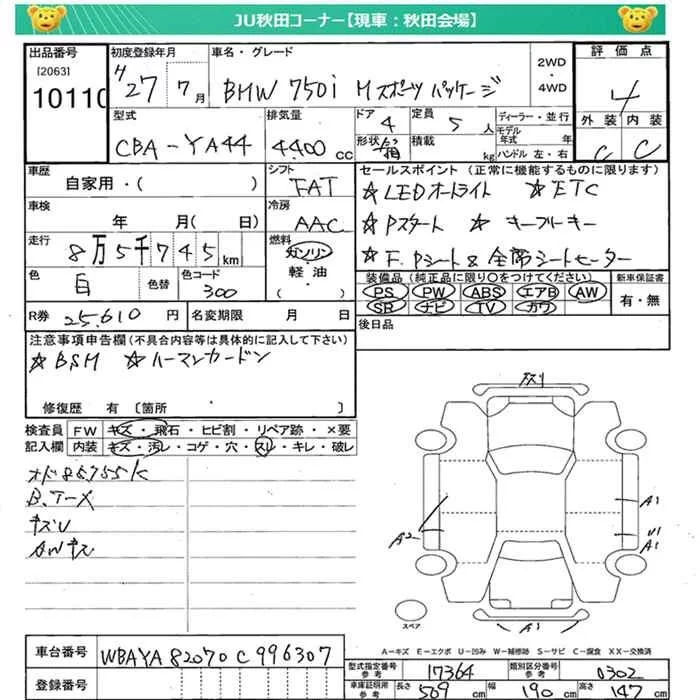 JU秋田コーナー【現車：秋田会場】
出品番号
[2063]
10110
初度登録年月
H27 7月
車名・グレード
BMW 750i Mスポーツパッケージ
2WD
・
4WD
評価点
4
外装 内装
C C
型式
CBA-YA44
排気量
4400 cc
ドア
4
定員
5人
形状
箱
積載
kg
ディーラー・並行
モデル年式 年
ハンドル 左・右
車歴
自家用・( )
シフト
FAT
車検
年 月( 日)
冷房
AAC
走行
8万5千745km
燃料
ガソリン
・
軽油
・
( )
色
白
色替
色コード
300
R券 25,610円
名変期限 月 日
セールスポイント(正常に機能するものに限ります)
☆LEDオートライト ☆ETC
☆Pスタート ☆キーフリーキー
☆F.Pシート&全席シートヒーター
装備品(純正品に限り○をつけてください)
PS PW ABS エアB AW
SR ナビ TV カワ
新車保証書
有・無
後日品
注意事項申告欄(不具合内容等は具体的に記入して下さい)
☆BSM ☆ハーマンカードン
修復歴 有 〔箇所 〕
検査員記入欄
FW キズ・飛石・ヒビ割・リペア跡・×要
内装 キズ・汚レ・コゲ・穴・スレ・キレ・破レ
オド85755K
キズU
AWキズ
A2
A1
U1
A1
A1
スペア
A-キズ E-エクボ U-凹み W-補修跡 S-サビ C-腐食 XX-交換済
車台番号 WBAYA82070C996307
登録番号
型式指定番号参考 17364
類別区分番号参考 0302
車庫証明所参考 長さ 509cm 幅 190cm 高さ 147cm